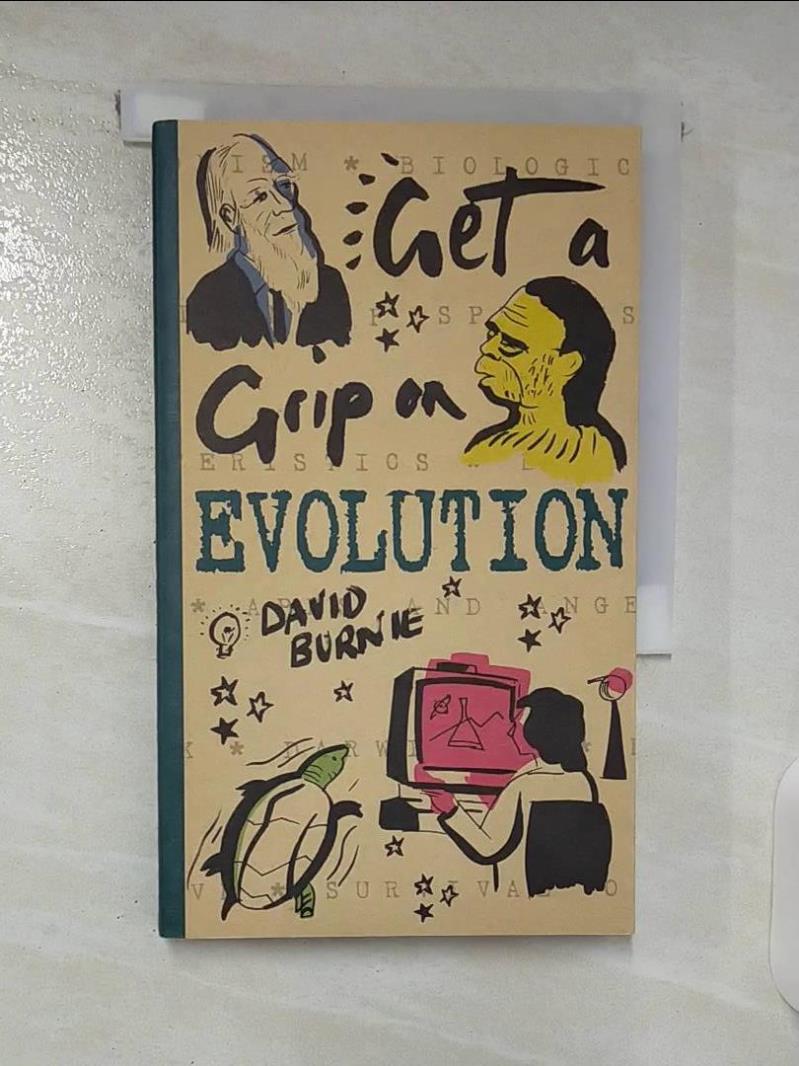 ISM * BIOLOGIC
Get a
SP S
Grip on
ERISTICS
EVOLUTION
AND ANGE
DAVID
BURNIE
* DARWI
* SURVIVAL O